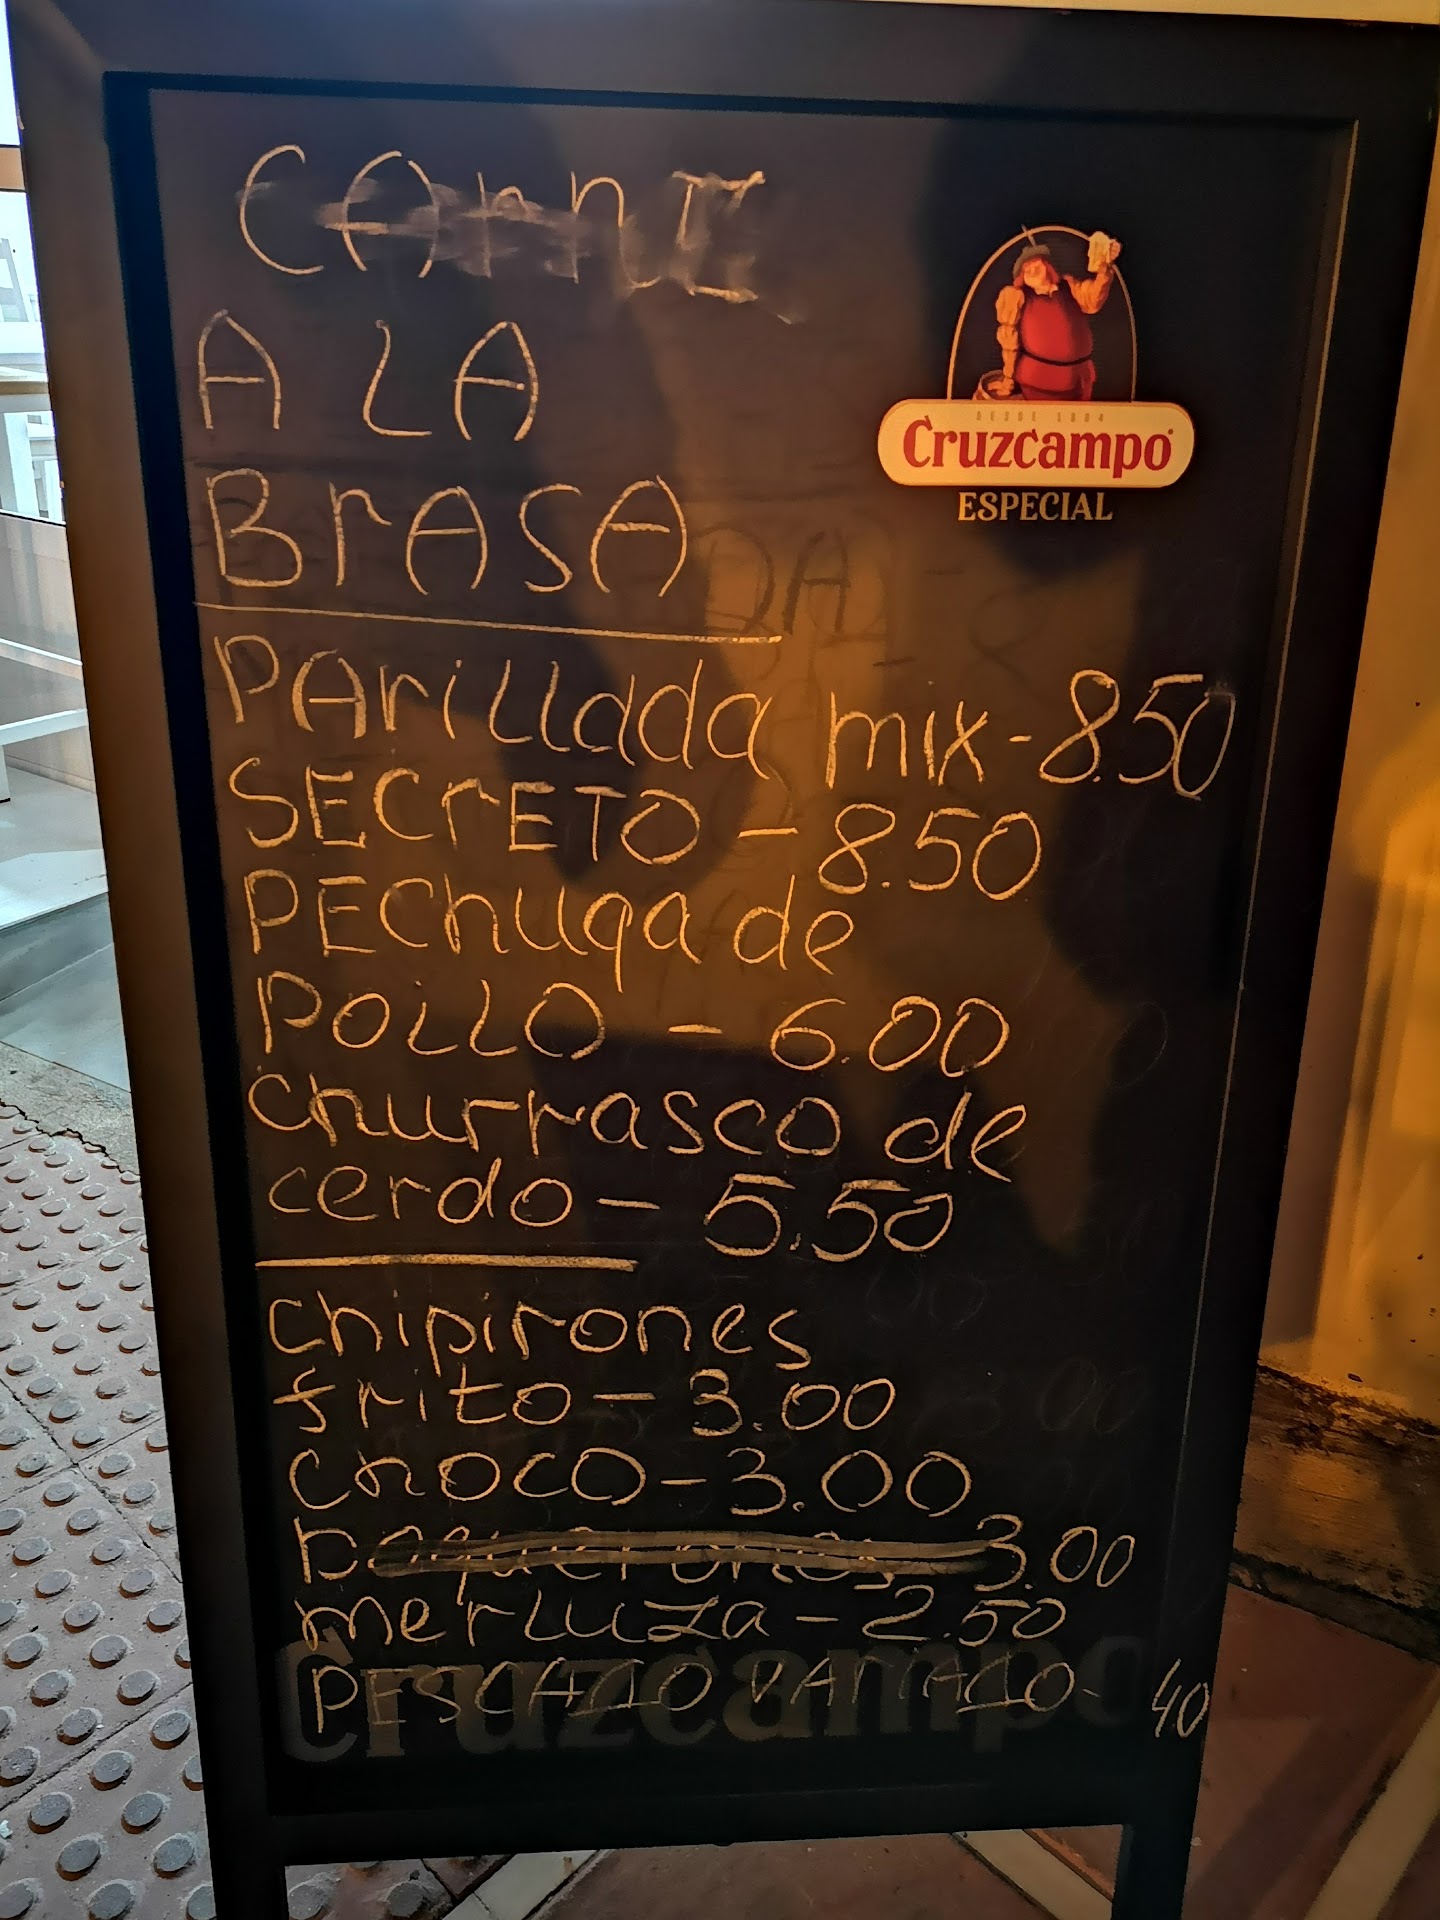 CArnE
A LA
BrASA
DESDE 1904
Cruzcampo
ESPECIAL
PArillada mix - 8.50
SECrETO - 8.50
PEChuga de
POLLO - 6.00
churrasco de
cerdo - 5.50
chipirones
frito - 3.00
choco - 3.00
boquerones 3.00
merluza - 2.50
PESCADO
40
Cruzcampo